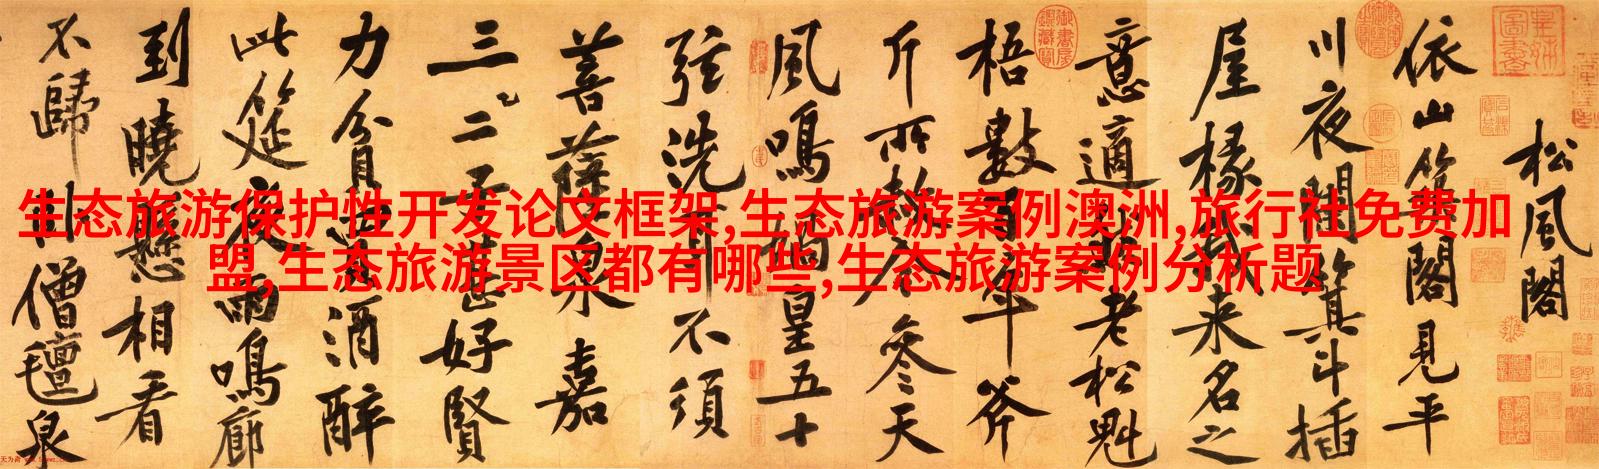 松風閣
依山築閣見平
川夜闌箕斗插
屋椽我来名之
意適然老松魁
梧數百年斧
斤所赦今參天
風鳴媧皇五十
弦洗耳不須
菩薩泉嘉
三二子甚好賢
力貧買酒醉
此筵夜雨鳴廊
到曉懸相看
不歸臥僧氊泉
生态旅游保护性开发论文框架,生态旅游案例澳洲,旅行社免费加
盟,生态旅游景区都有哪些,生态旅游案例分析题